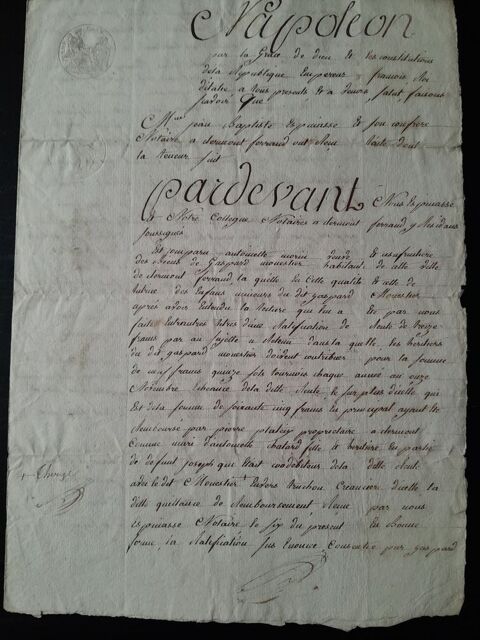 Napoleon
par la Grace de dieu et les constitutions
de la République Empereur françois Roi
d'italie a tous presents et a venir Salut, faisons
savoir Que
Mtre jean Baptiste Espinasse et son confrere
Notaire a clermont ferrand ont Recu l'acte dont
la teneur suit
Pardevant Nous Espinasse
et Notre Collegue Notaires a clermont ferrand y Residans
soussignés
Est comparu antoinette morin veuve et usufruitiere
des Biens de Gaspard monestier habitant de cette ville
de clermont ferrand, la quelle en cette qualité et celle de
tutrice des Enfans mineurs du dit gaspard Monestier
après avoir Entendu la lecture qui lui a été par nous
faite Entrautres titres d'une Ratification de Rente de
francs par an sujette a Retenue dans la quelle les heritiers
du dit gaspard monestier doivent contribuer pour la somme
de neuf francs quinze sols tournois chaque année au onze
Novembre Echeance de la dite Rente, le surplus d'icelle qui
Est de la somme de soixante cinq francs en principal ayant été
Remboursée par pierre plataix proprietaire a clermont
comme mari d'antoinette chatard fille et heritiere en partie
de defunt joseph qui Etait codebiteur de la dite Rente
avec le dit Monestier Envers truchon Creancier d'icelle la
dite quittance de Remboursement Recue par nous
Espinasse Notaire le six du present En Bonne
forme, la Ratification sus Enoncée consentie par gaspard